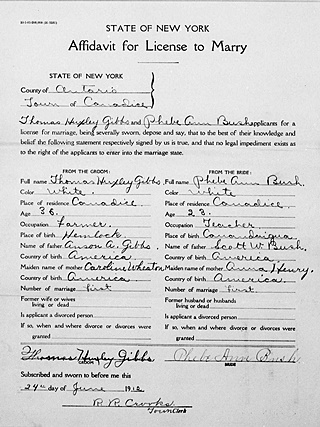 STATE OF NEW YORK
Affidavit for License to Marry
STATE OF NEW YORK
County of Ontario
Town of Canadice
Thomas Huxley Gibbs and Phebe Ann Bush applicants for
a license for marriage, being severally sworn, depose and say, that to the best of their knowledge and
belief the following statement respectively signed by us is true, and that no legal impediment exists as
to the right of the applicants to enter into the marriage state.
FROM THE GROOM:
Full name Thomas Huxley Gibbs
Color White
Place of residence Canadice
Age 36
Occupation Farmer
Place of birth Hemlock
Name of father Anson A. Gibbs
Country of birth America
Maiden name of mother Caroline Wheaton
Country of birth America
Number of marriage first
Former wife or wives
living or dead
Is applicant a divorced person
If so, when and where divorce or divorces were
granted
FROM THE BRIDE:
Full name Phebe Ann Bush
Color White
Place of residence Canadice
Age 23
Occupation Teacher
Place of birth Canandaigua
Name of father Scott W. Bush
Country of birth America
Maiden name of mother Anna Henry
Country of birth America
Number of marriage first
Former husband or husbands
living or dead
Is applicant a divorced person
If so, when and where divorce or divorces were
granted
Thomas Huxley Gibbs
GROOM
Phebe Ann Bush
BRIDE
Subscribed and sworn to before me this
24th day of June 1912
Crooks
Town Clerk